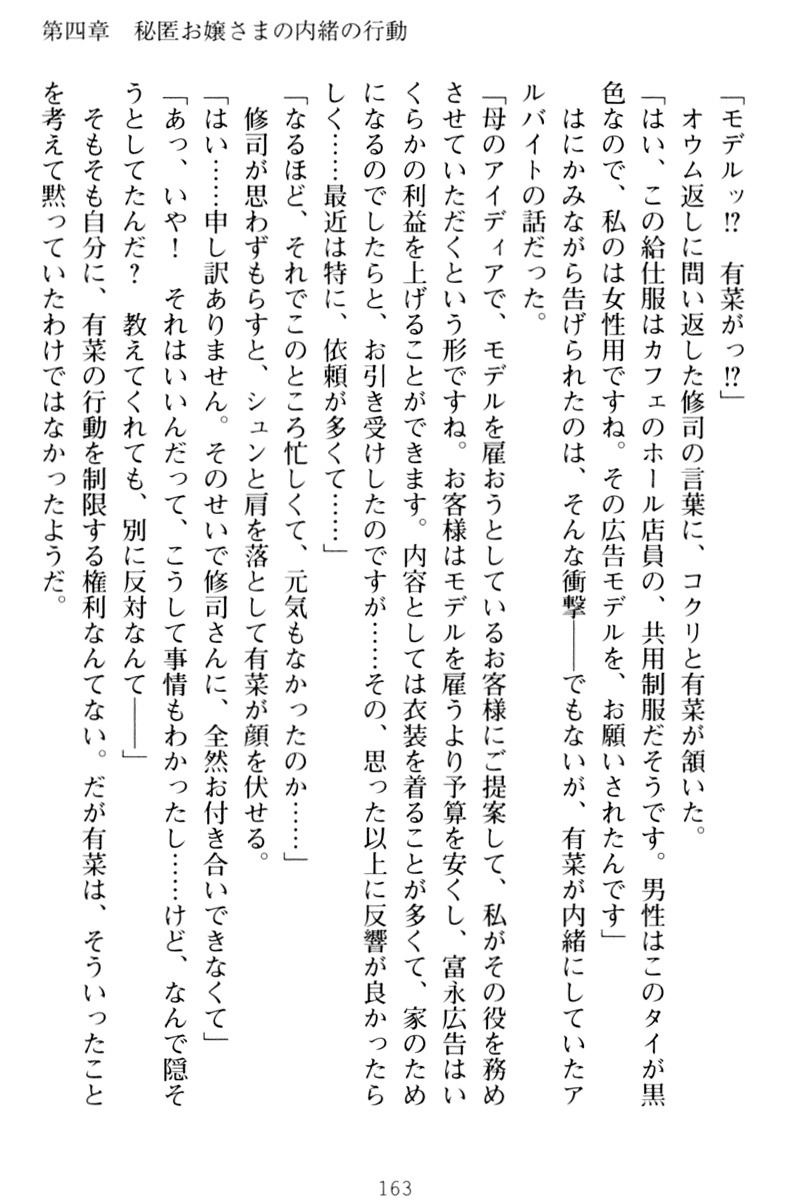 第四章　秘匿お嬢さまの内緒の行動
「モデルッ!?　有菜がっ!?」
　オウム返しに問い返した修司の言葉に、コクリと有菜が頷いた。
「はい、この給仕服はカフェのホール店員の、共用制服だそうです。男性はこのタイが黒
色なので、私のは女性用ですね。その広告モデルを、お願いされたんです」
　はにかみながら告げられたのは、そんな衝撃――でもないが、有菜が内緒にしていたア
ルバイトの話だった。
「母のアイディアで、モデルを雇おうとしているお客様にご提案して、私がその役を務め
させていただくという形ですね。お客様はモデルを雇うより予算を安くし、富永広告はい
くらかの利益を上げることができます。内容としては衣装を着ることが多くて、家のため
になるのでしたらと、お引き受けしたのですが……その、思った以上に反響が良かったら
しく……最近は特に、依頼が多くて……」
「なるほど、それでこのところ忙しくて、元気もなかったのか……」
　修司が思わずもらすと、シュンと肩を落として有菜が顔を伏せる。
「はい……申し訳ありません。そのせいで修司さんに、全然お付き合いできなくて」
「あっ、いや！　それはいいんだって、こうして事情もわかったし……けど、なんで隠そ
うとしてたんだ？　教えてくれても、別に反対なんて――」
　そもそも自分に、有菜の行動を制限する権利なんてない。だが有菜は、そういったこと
を考えて黙っていたわけではなかったようだ。
163